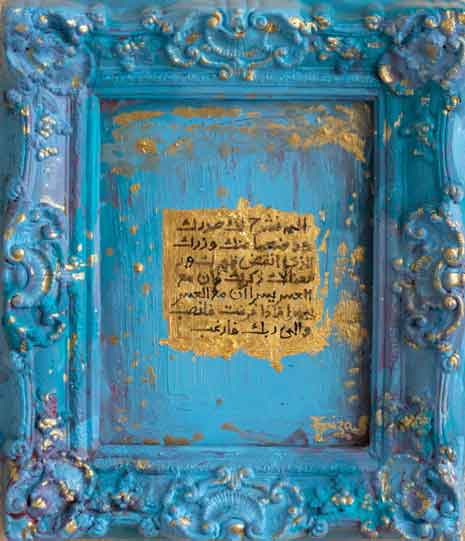 الم نشرح لك صدرك
ووضعنا عنك وزرك
الذي انقض ظهرك ور
فعنا لك ذكرك فان مع
العسر يسرا ان مع العسر
يسرا فاذا فرغت فانصب
والى ربك فارغب